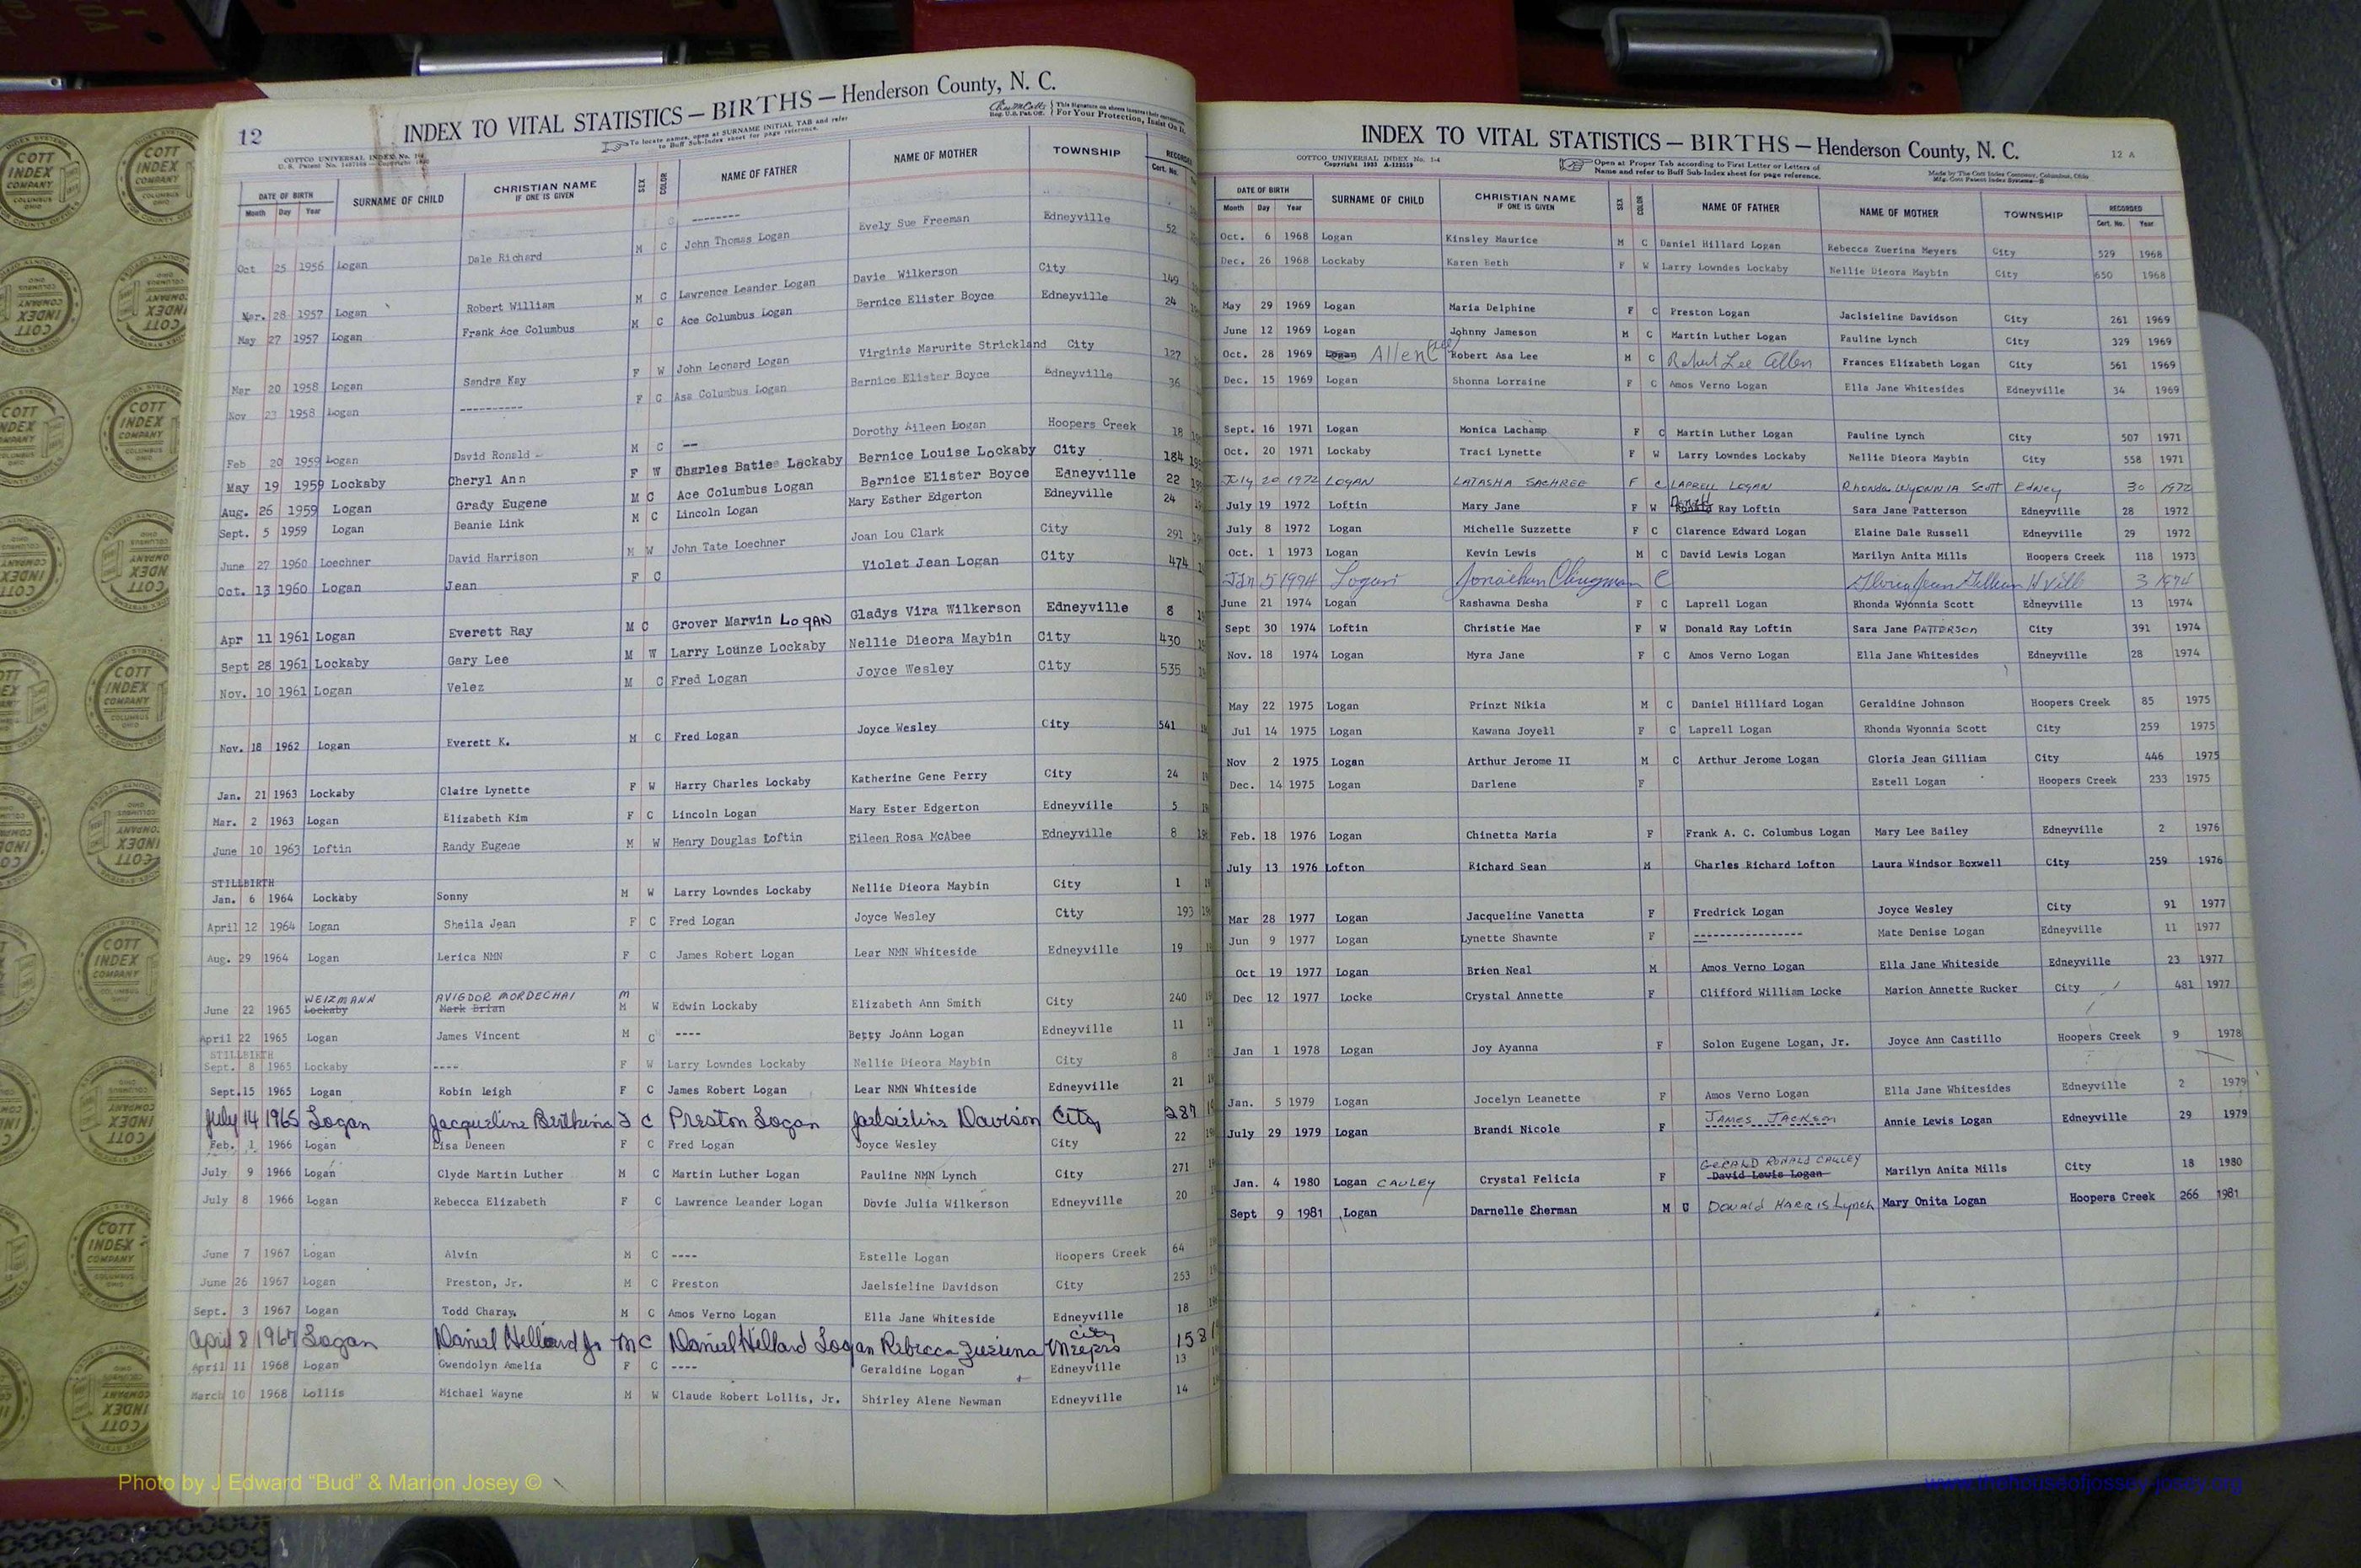 12
INDEX TO VITAL STATISTICS — BIRTHS — Henderson County, N. C.
To locate names, open at SURNAME INITIAL TAB and refer
to Buff Sub-Index sheet for page reference.
For Your Protection, Insist On It.
COTTCO UNIVERSAL INDEX
DATE OF BIRTH SURNAME OF CHILD CHRISTIAN NAME IF ONE IS GIVEN SEX COLOR NAME OF FATHER NAME OF MOTHER TOWNSHIP RECORDED
Month Day Year Cert. No.
Oct 25 1956 Logan Dale Richard M C John Thomas Logan Evely Sue Freeman Edneyville 52
Mar. 28 1957 Logan Robert William M C Lawrence Leander Logan Davie Wilkerson City 149
May 27 1957 Logan Frank Ace Columbus M C Ace Columbus Logan Bernice Elister Boyce Edneyville 24
Mar 20 1958 Logan Sandra Kay F W John Leonard Logan Virginia Marurite Strickland City 127
Nov 23 1958 Logan ---------- F C Asa Columbus Logan Bernice Elister Boyce Edneyville 36
Feb 20 1959 Logan David Ronald M C -- Dorothy Aileen Logan Hoopers Creek 18
May 19 1959 Lockaby Cheryl Ann F W Charles Batie Lockaby Bernice Louise Lockaby City 184
Aug. 26 1959 Logan Grady Eugene M C Ace Columbus Logan Bernice Elister Boyce Edneyville 22
Sept. 5 1959 Logan Beanie Link M C Lincoln Logan Mary Esther Edgerton Edneyville 24
June 27 1960 Loechner David Harrison M W John Tate Loechner Joan Lou Clark City 291
Oct. 13 1960 Logan Jean F C Violet Jean Logan City 474
Apr 11 1961 Logan Everett Ray M C Grover Marvin LOGAN Gladys Vira Wilkerson Edneyville 8
Sept 28 1961 Lockaby Gary Lee M W Larry Lounze Lockaby Nellie Dieora Maybin City 430
Nov. 10 1961 Logan Velez M C Fred Logan Joyce Wesley City 535
Nov. 18 1962 Logan Everett K. M C Fred Logan Joyce Wesley City 541
Jan. 21 1963 Lockaby Claire Lynette F W Harry Charles Lockaby Katherine Gene Perry City 24
Mar. 2 1963 Logan Elizabeth Kim F C Lincoln Logan Mary Ester Edgerton Edneyville 5
June 10 1963 Loftin Randy Eugene M W Henry Douglas Loftin Eileen Rosa McAbee Edneyville 8
STILLBIRTH
Jan. 6 1964 Lockaby Sonny M W Larry Lowndes Lockaby Nellie Dieora Maybin City 1
April 12 1964 Logan Sheila Jean F C Fred Logan Joyce Wesley City 193
Aug. 29 1964 Logan Lerica NMN F C James Robert Logan Lear NMN Whiteside Edneyville 19
WEIZMANN AVIGDOR MORDECHAI M
June 22 1965 Lockaby Mark Brian M W Edwin Lockaby Elizabeth Ann Smith City 240
April 22 1965 Logan James Vincent M C ---- Betty JoAnn Logan Edneyville 11
STILLBIRTH
Sept. 8 1965 Lockaby ---- F W Larry Lowndes Lockaby Nellie Dieora Maybin City 8
Sept. 15 1965 Logan Robin Leigh F C James Robert Logan Lear NMN Whiteside Edneyville 21
July 14 1965 Logan Jacqueline F C Preston Logan Davison City 287
Feb. 1 1966 Logan Lisa Deneen F C Fred Logan Joyce Wesley City 22
July 9 1966 Logan Clyde Martin Luther M C Martin Luther Logan Pauline NMN Lynch City 271
July 8 1966 Logan Rebecca Elizabeth F C Lawrence Leander Logan Dovie Julia Wilkerson Edneyville 20
June 7 1967 Logan Alvin M C ---- Estelle Logan Hoopers Creek 64
June 26 1967 Logan Preston, Jr. M C Preston Jaelsieline Davidson City 253
Sept. 3 1967 Logan Todd Charay M C Amos Verno Logan Ella Jane Whiteside Edneyville 18
April 8 1967 Logan Daniel Hellard Jr M C Daniel Hellard Logan Rebecca Zuerina Meyers City 158
April 11 1968 Logan Gwendolyn Amelia F C ---- Geraldine Logan Edneyville 13
March 10 1968 Lollis Michael Wayne M W Claude Robert Lollis, Jr. Shirley Alene Newman Edneyville 14
INDEX TO VITAL STATISTICS — BIRTHS — Henderson County, N. C.
12 A
COTTCO UNIVERSAL INDEX No. 1-4
Copyright 1933 A-122559
Open at Proper Tab according to First Letter or Letters of
Name and refer to Buff Sub-Index sheet for page reference.
Made by The Cott Index Company, Columbus, Ohio
DATE OF BIRTH SURNAME OF CHILD CHRISTIAN NAME IF ONE IS GIVEN SEX COLOR NAME OF FATHER NAME OF MOTHER TOWNSHIP RECORDED
Month Day Year Cert. No. Year
Oct. 6 1968 Logan Kinsley Maurice M C Daniel Hillard Logan Rebecca Zuerina Meyers City 529 1968
Dec. 26 1968 Lockaby Karen Beth F W Larry Lowndes Lockaby Nellie Dieora Maybin City 650 1968
May 29 1969 Logan Maria Delphine F C Preston Logan Jaclsieline Davidson City 261 1969
June 12 1969 Logan Johnny Jameson M C Martin Luther Logan Pauline Lynch City 329 1969
Oct. 28 1969 Logan Allen Robert Asa Lee M C Robert Lee Allen Frances Elizabeth Logan City 561 1969
Dec. 15 1969 Logan Shonna Lorraine F C Amos Verno Logan Ella Jane Whitesides Edneyville 34 1969
Sept. 16 1971 Logan Monica Lachamp F C Martin Luther Logan Pauline Lynch City 507 1971
Oct. 20 1971 Lockaby Traci Lynette F W Larry Lowndes Lockaby Nellie Dieora Maybin City 558 1971
July 20 1972 LOGAN LATASHA SACHREE F C LAPRELL LOGAN Rhonda WYONNIA Scott Edney 30 1972
July 19 1972 Loftin Mary Jane F W Donald Ray Loftin Sara Jane Patterson Edneyville 28 1972
July 8 1972 Logan Michelle Suzzette F C Clarence Edward Logan Elaine Dale Russell Edneyville 29 1972
Oct. 1 1973 Logan Kevin Lewis M C David Lewis Logan Marilyn Anita Mills Hoopers Creek 118 1973
Jan 5 1974 Logan Jonathan Clingman C Gloria Jean Gilliam H Ville 3 1974
June 21 1974 Logan Rashawna Desha F C Laprell Logan Rhonda Wyonnia Scott Edneyville 13 1974
Sept 30 1974 Loftin Christie Mae F W Donald Ray Loftin Sara Jane PATTERSON City 391 1974
Nov. 18 1974 Logan Myra Jane F C Amos Verno Logan Ella Jane Whitesides Edneyville 28 1974
May 22 1975 Logan Prinzt Nikia M C Daniel Hilliard Logan Geraldine Johnson Hoopers Creek 85 1975
Jul 14 1975 Logan Kawana Joyell F C Laprell Logan Rhonda Wyonnia Scott City 259 1975
Nov 2 1975 Logan Arthur Jerome II M C Arthur Jerome Logan Gloria Jean Gilliam City 446 1975
Dec. 14 1975 Logan Darlene F Estell Logan Hoopers Creek 233 1975
Feb. 18 1976 Logan Chinetta Maria F Frank A. C. Columbus Logan Mary Lee Bailey Edneyville 2 1976
July 13 1976 Lofton Richard Sean M Charles Richard Lofton Laura Windsor Boxwell City 259 1976
Mar 28 1977 Logan Jacqueline Vanetta F Fredrick Logan Joyce Wesley City 91 1977
Jun 9 1977 Logan Lynette Shawnte F ---------------- Mate Denise Logan Edneyville 11 1977
Oct 19 1977 Logan Brien Neal M Amos Verno Logan Ella Jane Whiteside Edneyville 23 1977
Dec 12 1977 Locke Crystal Annette F Clifford William Locke Marion Annette Rucker City 481 1977
Jan 1 1978 Logan Joy Ayanna F Solon Eugene Logan, Jr. Joyce Ann Castillo Hoopers Creek 9 1978
Jan. 5 1979 Logan Jocelyn Leanette F Amos Verno Logan Ella Jane Whitesides Edneyville 2 1979
July 29 1979 Logan Brandi Nicole F JAMES JACKSON Annie Lewis Logan Edneyville 29 1979
GERALD RONALD CAULEY
Jan. 4 1980 Logan CAULEY Crystal Felicia F David Lewis Logan Marilyn Anita Mills City 18 1980
Sept 9 1981 Logan Darnelle Sherman M DONALD HARRIS Lynch Mary Onita Logan Hoopers Creek 266 1981
COTT INDEX COMPANY COLUMBUS OHIO
Photo by J Edward “Bud” & Marion Josey ©
www.thehouseofjossey-josey.org